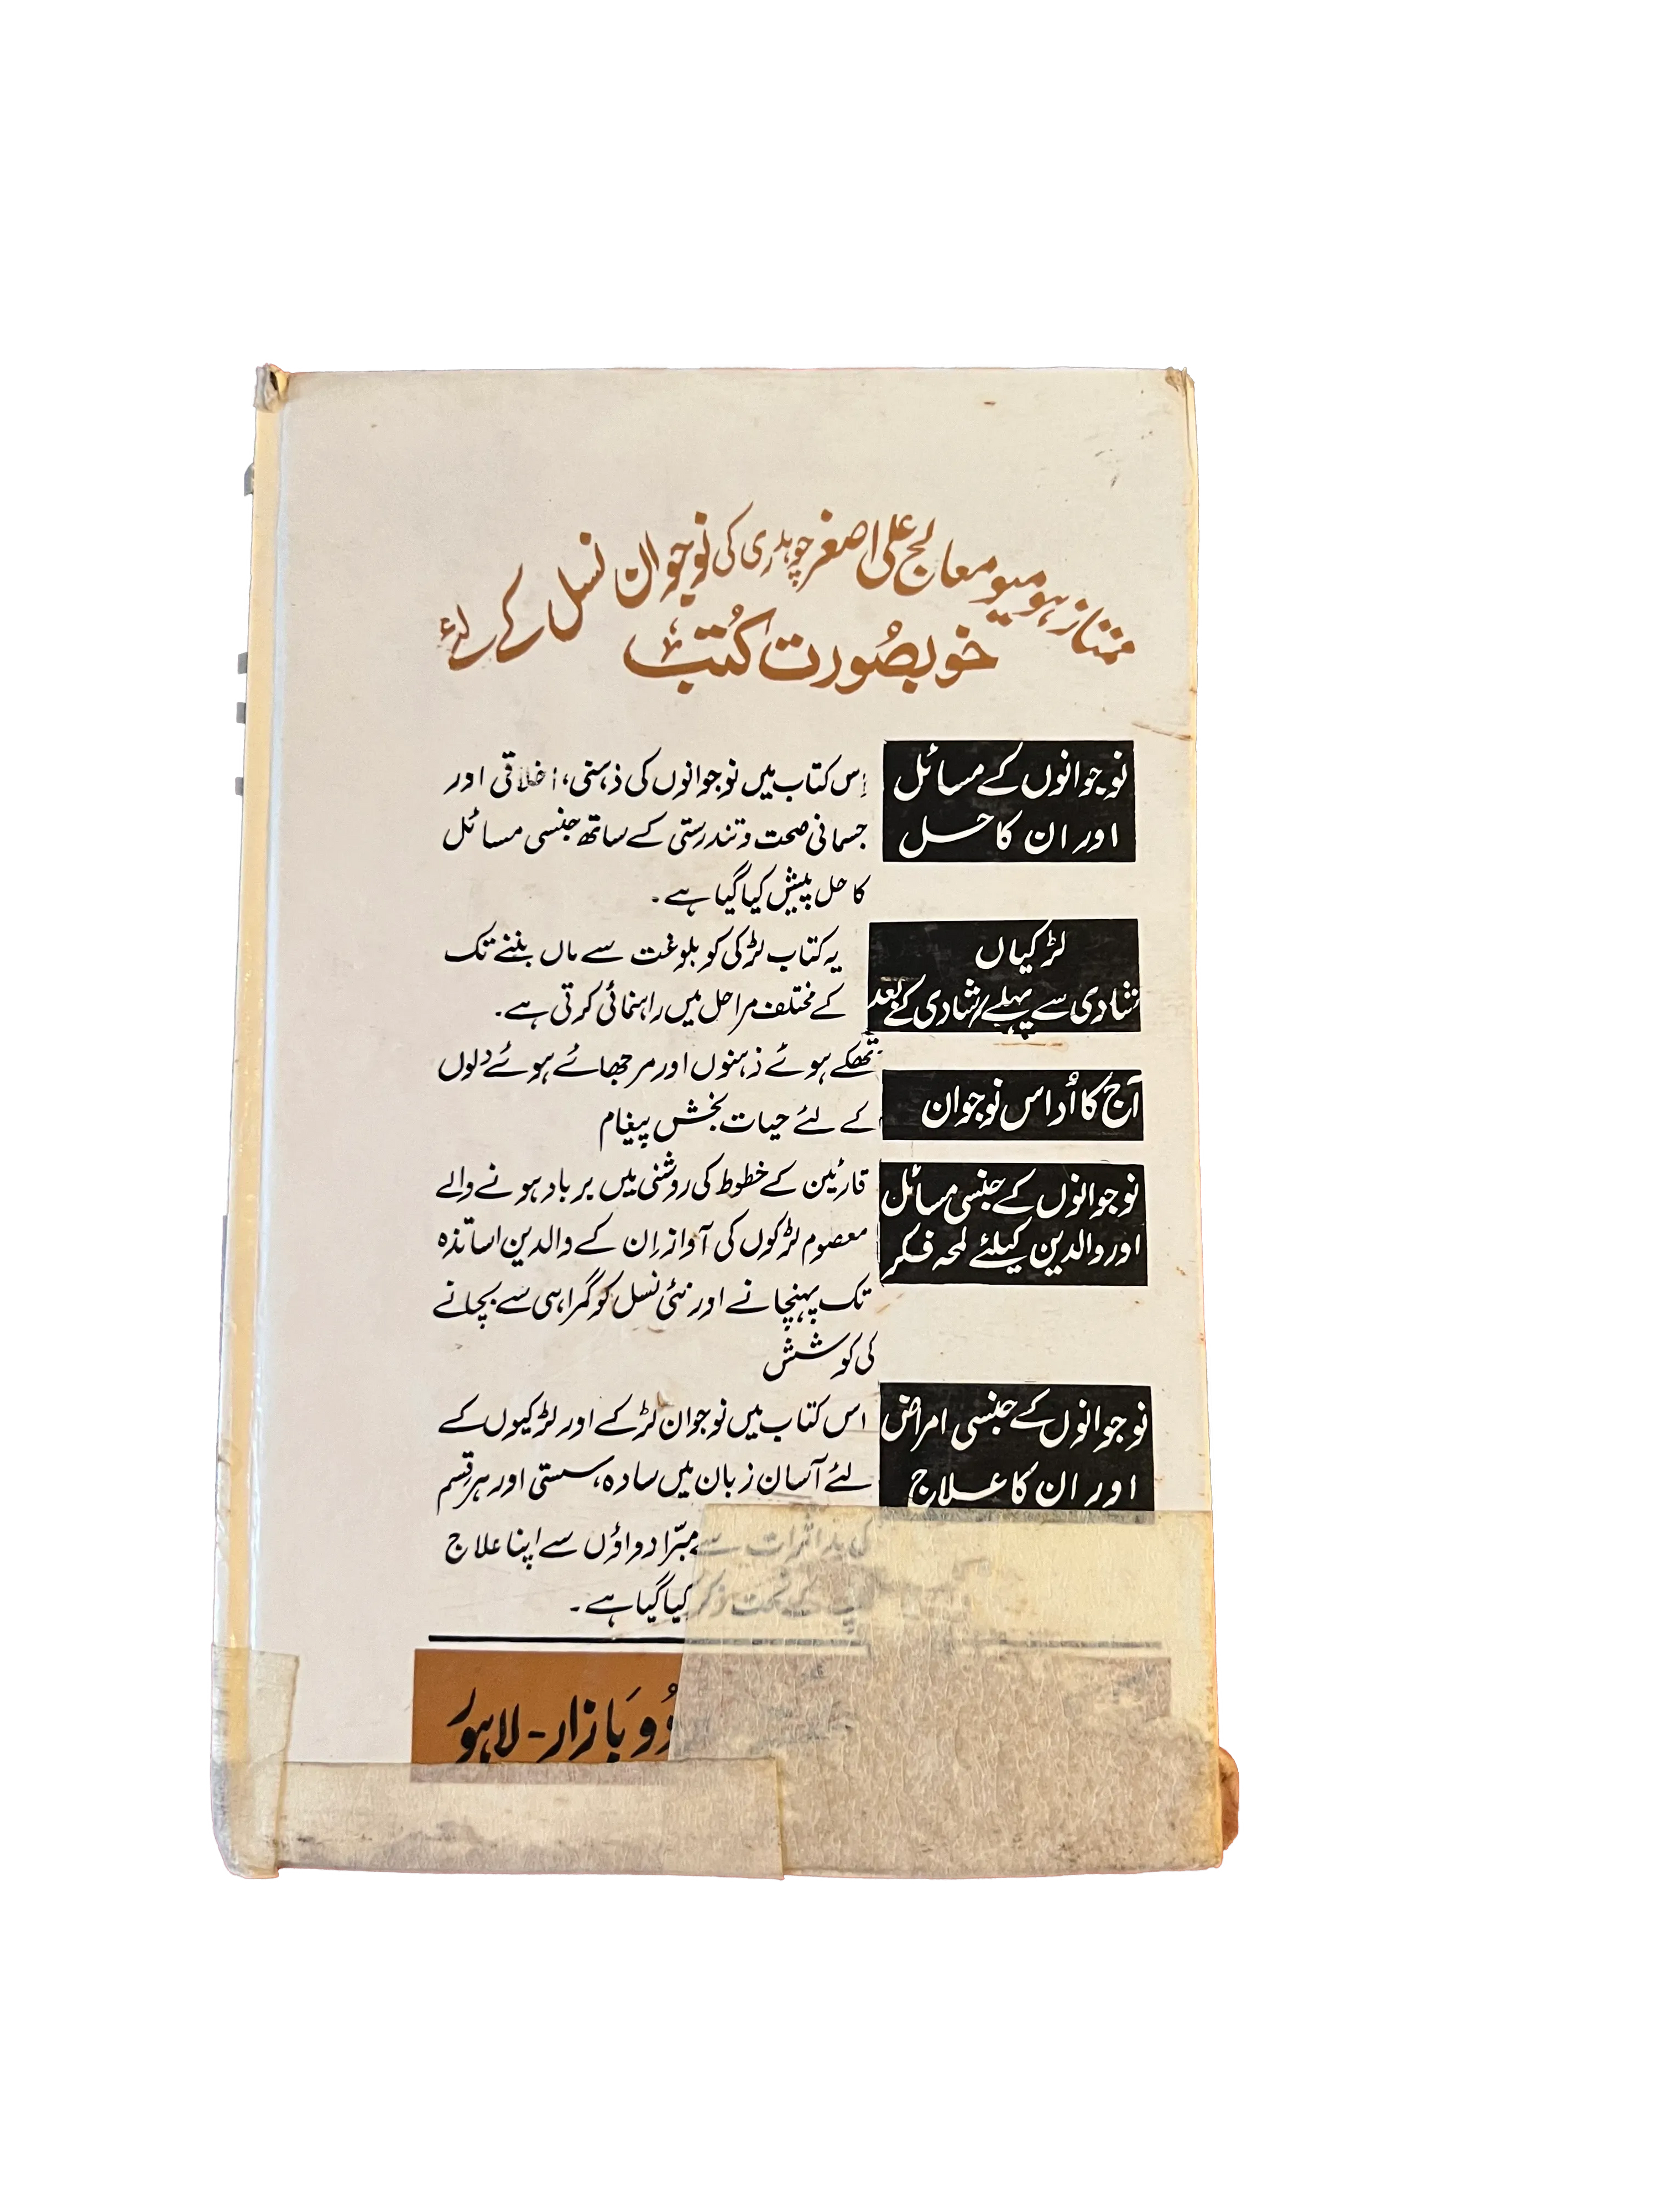 ممتاز ہومیو معالج علی اصغر چوہدری کی نوجوان نسل کے لئے
خوبصورت کتب
نوجوانوں کے مسائل
اور ان کا حل
اِس کتاب میں نوجوانوں کی ذہنی، اخلاقی اور
جسمانی صحت و تندرستی کے ساتھ جنسی مسائل
کا حل پیش کیا گیا ہے۔
لڑکیاں
شادی سے پہلے/شادی کے بعد
یہ کتاب لڑکی کو بلوغت سے ماں بننے تک
کے مختلف مراحل میں راہنمائی کرتی ہے۔
آج کا اُداس نوجوان
تھکے ہوئے ذہنوں اور مرجھائے ہوئے دلوں
کے لئے حیات بخش پیغام
نوجوانوں کے جنسی مسائل
اور والدین کیلئے لمحہ فکر
قارئین کے خطوط کی روشنی میں برباد ہونے والے
معصوم لڑکوں کی آواز اِن کے والدین اساتذہ
تک پہنچانے اور نئی نسل کو گمراہی سے بچانے
کی کوشش
نوجوانوں کے جنسی امراض
اور ان کا علاج
اس کتاب میں نوجوان لڑکے اور لڑکیوں کے
لئے آسان زبان میں سادہ، سستی اور ہر قسم
کی بد اثرات سے مبّرا دواؤں سے اپنا علاج
کے تحت ذکر کیا گیا ہے۔
بازار - لاہور